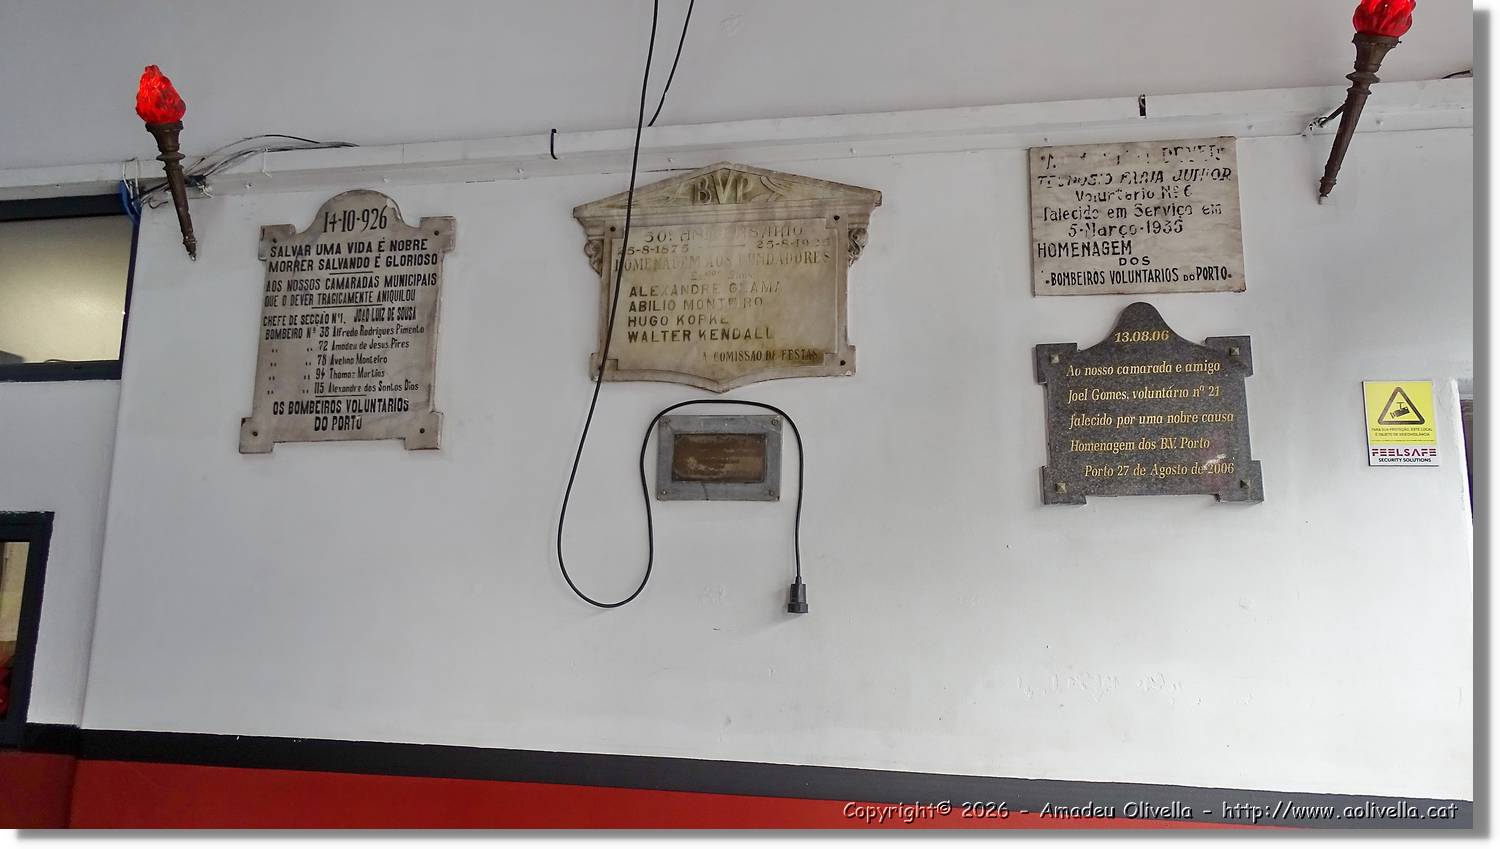 14-10-926
SALVAR UMA VIDA É NOBRE
MORRER SALVANDO É GLORIOSO
AOS NOSSOS CAMARADAS MUNICIPAIS
QUE O DEVER TRAGICAMENTE ANIQUILOU
CHEFE DE SECÇÃO Nº1. JOÃO LUIZ DE SOUSA
BOMBEIRO Nº 38 Alfredo Rodrigues Pimenta
" " 72 Amadeu de Jesus Pires
" " 78 Avelino Monteiro
" " 94 Thomaz Martins
" " 115 Alexandre dos Santos Dias
OS BOMBEIROS VOLUNTARIOS
DO PORTO
BVP
50º ANIVERSARIO
25-8-1875 25-8-1925
HOMENAGEM AOS FUNDADORES
ALEXANDRE GLAMA
ABILIO MONTEIRO
HUGO KOPKE
WALTER KENDALL
A COMISSÃO DE FESTAS
DEVER
FARIA JUNIOR
Voluntario Nº 6
falecido em Serviço em
5-Março-1935
HOMENAGEM
DOS
BOMBEIROS VOLUNTARIOS DO PORTO
13.08.06
Ao nosso camarada e amigo
Joel Gomes, voluntário nº 21
falecido por uma nobre causa
Homenagem dos B.V. Porto
Porto 27 de Agosto de 2006
PARA SUA PROTEÇÃO, ESTE LOCAL
É OBJETO DE VIDEOVIGILÂNCIA
FEELSAFE
SECURITY SOLUTIONS
Copyright© 2026 - Amadeu Olivella - http://www.aolivella.cat